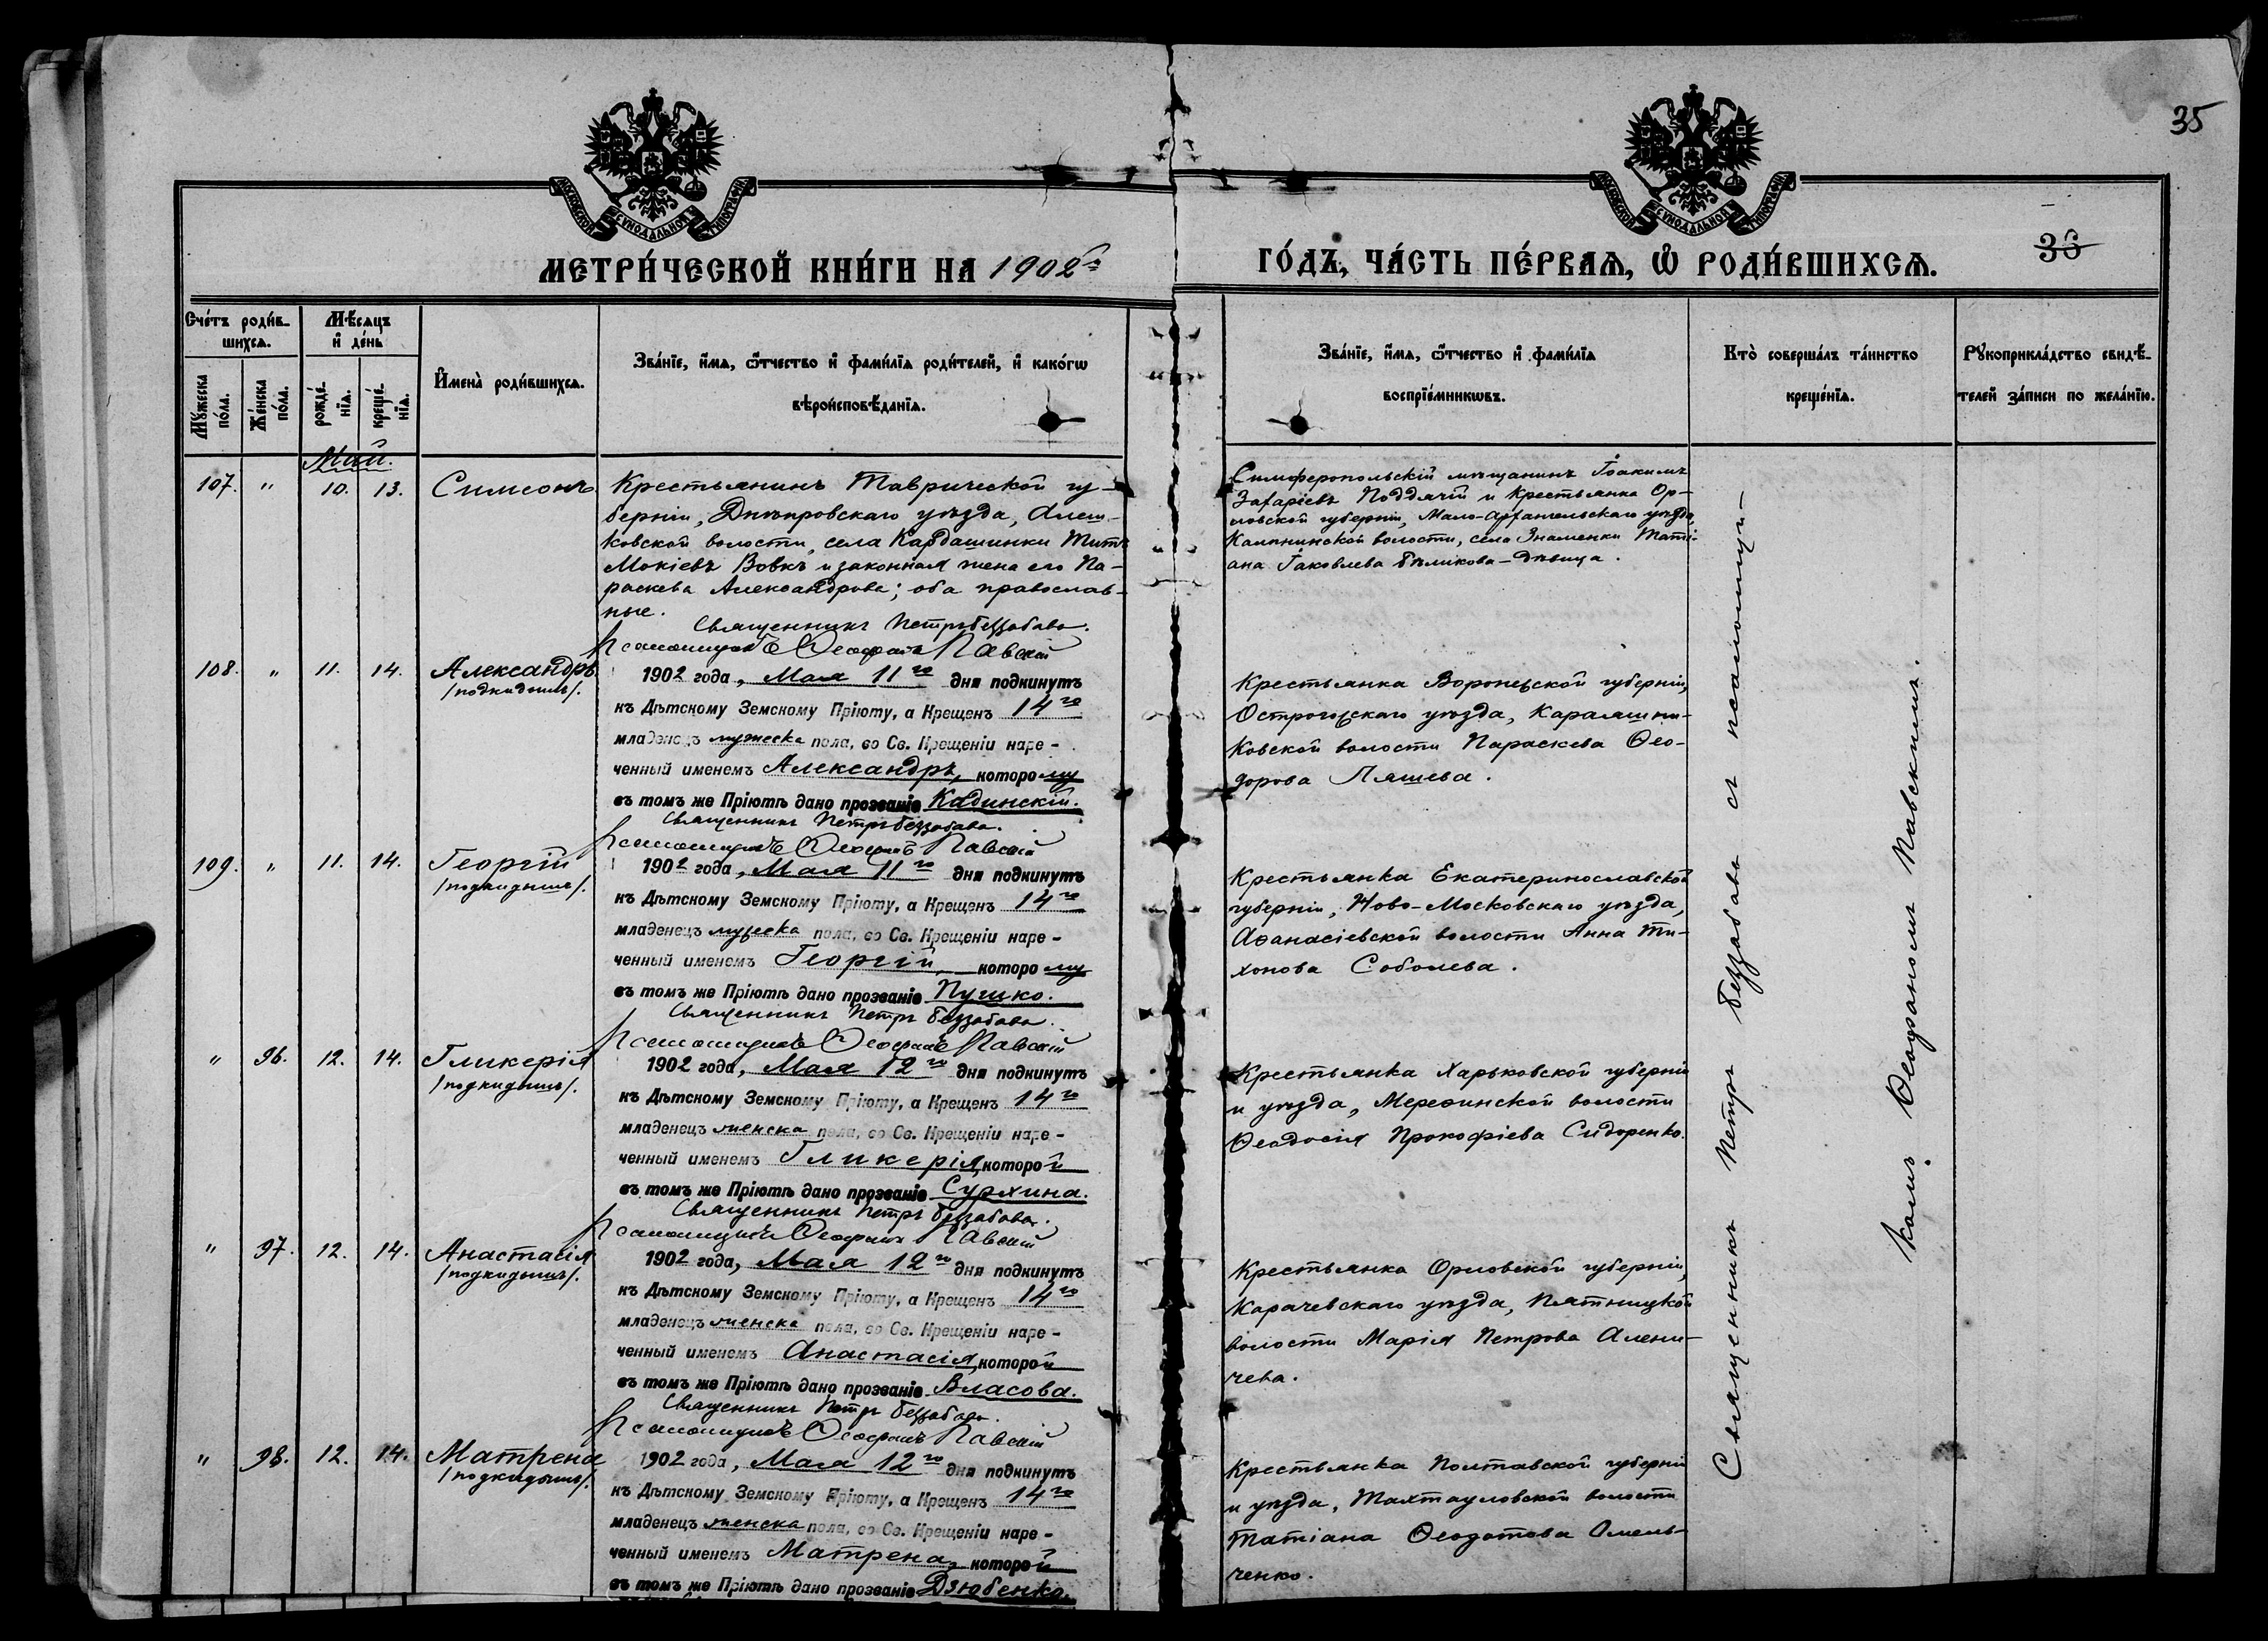 35
МОСКОВСКОЙ СѴНОДАЛЬНОЙ ТИПОГРАФІИ
МОСКОВСКОЙ СѴНОДАЛЬНОЙ ТИПОГРАФІИ
МЕТРИ́ЧЕСКОЙ КНИ́ГИ НА 1902й
ГО́ДЪ, ЧА́СТЬ ПЕ́РВАѦ, Ѡ҆ РОДИ́ВШИХСѦ.
36
Счéтъ роди́в-
шихсѧ.
Мѣ́сѧцъ
и҆ дéнь
Мꙋ́жеска пóла.
Жéнска пóла.
рождé-
нїѧ.
крещé-
нїѧ.
И҆менà роди́вшихсѧ.
Звáнїе, и҆́мѧ, ѻ҆́тчество и҆ фами́лїѧ роди́телей, и҆ какóгѡ
вѣроисповѣ́данїѧ.
Звáнїе, и҆́мѧ, ѻ҆́тчество и҆ фами́лїѧ
воспрїéмникѡвъ.
Ктò совершáлъ тáинство
крещéнїѧ.
Рꙋкоприклáдство свидѣ́-
телей зáписи по желáнїю.
Май.
107. " 10. 13. Симеонъ
Крестьянинъ Таврической гу-
берніи, Днѣпровскаго уѣзда, Алеш-
ковской волости, села Кардашинки Титъ
Мокіевъ Вовкъ и законная жена его Па-
раскева Александрова; оба православ-
ные.
Священникъ Петръ Беззабава.
Псаломщикъ Ѳеофанъ Павскій
Симферопольскій мѣщанинъ Іоакимъ
Захаріевъ Поддячій и Крестьянка Ор-
ловской губерніи, Мало-Архангельскаго уѣзда,
волости, села Знаменки Таті-
ана Іаковлева Бѣликова - дѣвица.
108. " 11. 14. Александръ
/подкидышъ/.
1902 года, Мая 11го дня подкинутъ
къ Дѣтскому Земскому Пріюту, а Крещенъ 14го
младенецъ мужеска пола, во Св. Крещеніи наре-
ченный именемъ Александръ, которому
въ томъ же Пріютѣ дано прозваніе Кадинскій.
Священникъ Петръ Беззабава.
Псаломщикъ Ѳеофанъ Павскій
Крестьянка Воронежской губерніи,
Острогожскаго уѣзда, Караяшни-
ковской волости Параскева Ѳео-
дорова Ляшева.
109. " 11. 14. Георгій
/подкидышъ/.
1902 года, Мая 11го дня подкинутъ
къ Дѣтскому Земскому Пріюту, а Крещенъ 14го
младенецъ мужеска пола, во Св. Крещеніи наре-
ченный именемъ Георгій, которому
въ томъ же Пріютѣ дано прозваніе Пушко.
Священникъ Петръ Беззабава.
Псаломщикъ Ѳеофанъ Павскій
Крестьянка Екатеринославской
губерніи, Ново-Московскаго уѣзда,
Аѳанасіевской волости Анна Ти-
хонова Соболева.
" 96. 12. 14. Гликерія
/подкидышъ/.
1902 года, Мая 12го дня подкинутъ
къ Дѣтскому Земскому Пріюту, а Крещенъ 14го
младенецъ женска пола, во Св. Крещеніи наре-
ченный именемъ Гликерія, которой
въ томъ же Пріютѣ дано прозваніе Сурхина.
Священникъ Петръ Беззабава.
Псаломщикъ Ѳеофанъ Павскій
Крестьянка Харьковской губерніи
и уѣзда, Мереѳинской волости
Ѳеодосія Прокофіева Сидоренко.
" 97. 12. 14. Анастасія
/подкидышъ/.
1902 года, Мая 12го дня подкинутъ
къ Дѣтскому Земскому Пріюту, а Крещенъ 14го
младенецъ женска пола, во Св. Крещеніи наре-
ченный именемъ Анастасія, которой
въ томъ же Пріютѣ дано прозваніе Власова.
Священникъ Петръ Беззабава.
Псаломщикъ Ѳеофанъ Павскій
Крестьянка Орловской губерніи,
Карачевскаго уѣзда, Пятницкой
волости Марія Петрова Алени-
чева.
" 98. 12. 14. Матрена
/подкидышъ/.
1902 года, Мая 12го дня подкинутъ
къ Дѣтскому Земскому Пріюту, а Крещенъ 14го
младенецъ женска пола, во Св. Крещеніи наре-
ченный именемъ Матрена, которой
въ томъ же Пріютѣ дано прозваніе Дзюбенко.
Крестьянка Полтавской губерніи
и уѣзда, Тахтауловской волости
Татіана Ѳеодотова Омель-
ченко.
Священникъ Петръ Беззабава съ псаломщи-
комъ Ѳеофаномъ Павскимъ.